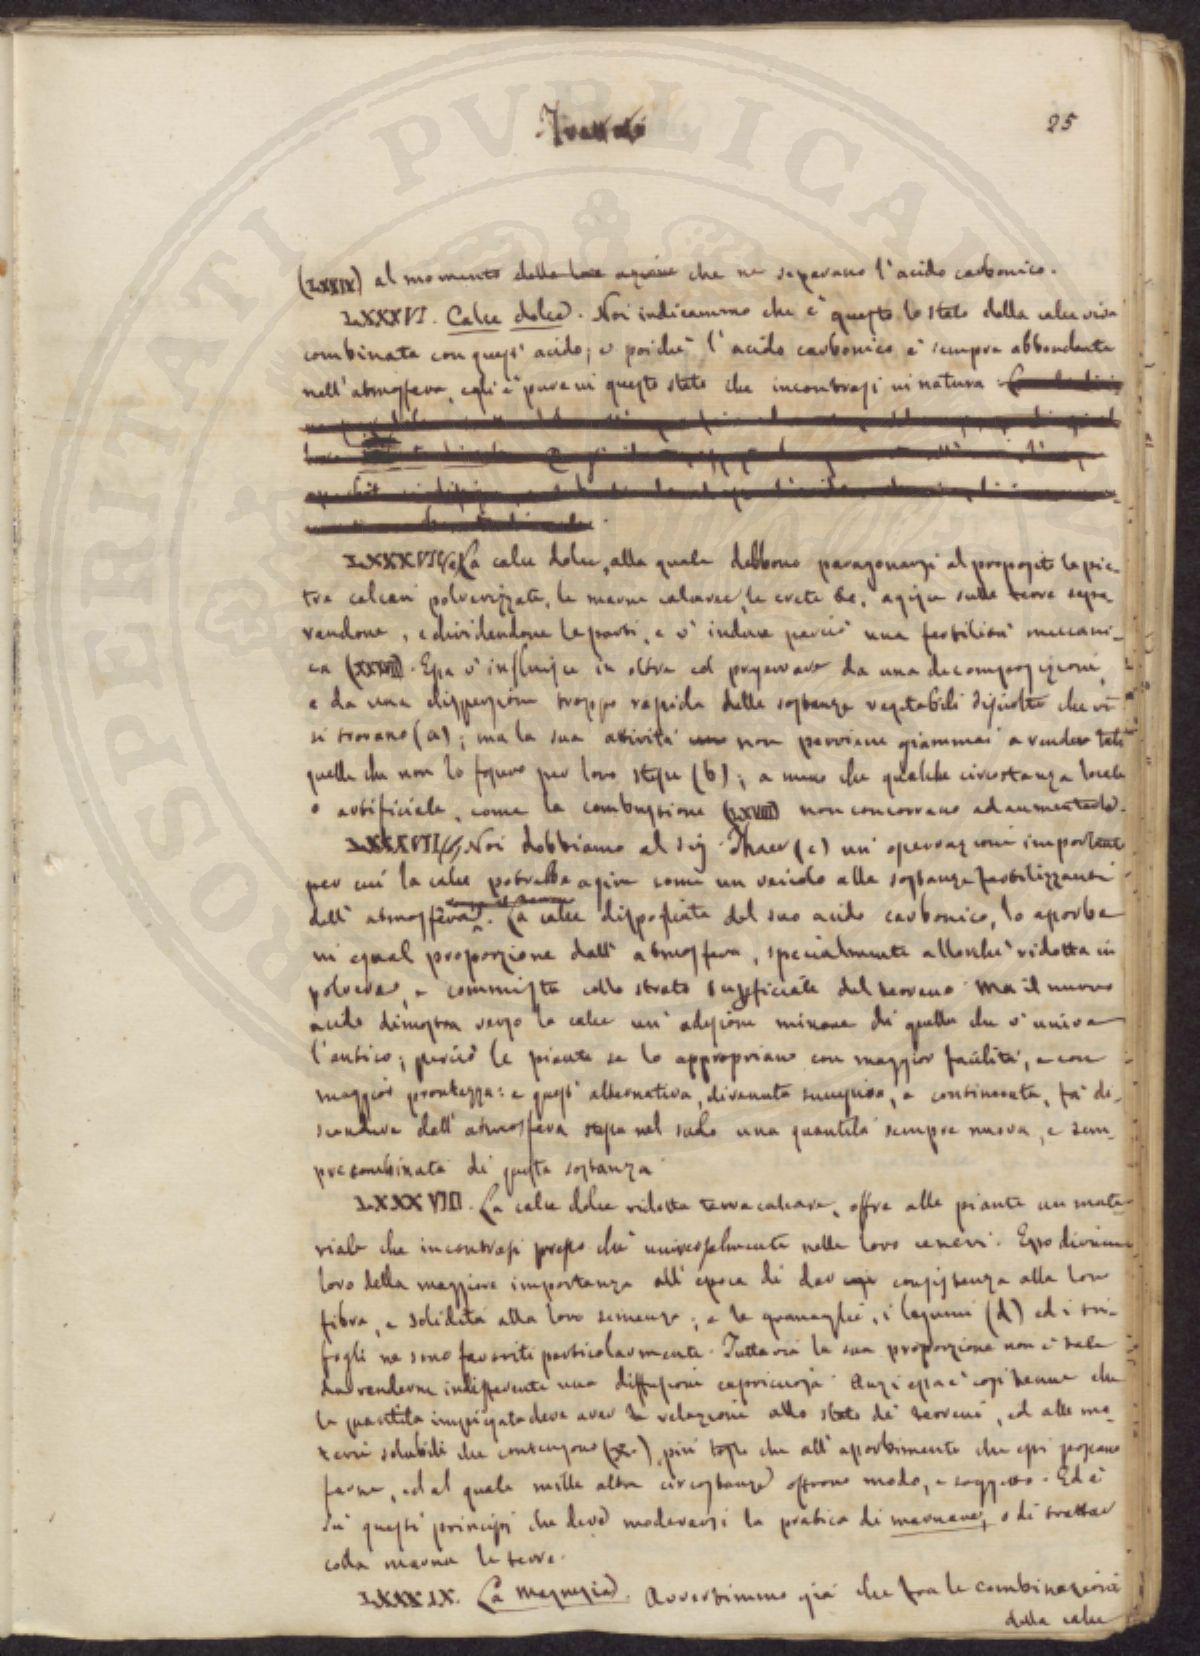 25
(LXXIX) al momento della loro azione che ne separano l'acido carbonico.
LXXXVI. Calce dolce. Noi indicammo che è questo lo stato della calce viva
combinata con quest' acido; e poichè l'acido carbonico è sempre abbondante
nell' atmosfera, egli è pure in questo stato che incontrasi in natura
LXXXVII(a) La calce dolce, alla quale debbono paragonarsi al proposito la pie-
tra calcari polverizzata, le marne calcaree, le crete &c, agisce sulle terre sepa-
randone, e dividendone le parti, e v' induce perciò una fertilità meccani-
ca (XXVII). Essa v' influisce in oltre col preservare da una decomposizione,
e da una dispersione troppo rapida delle sostanze vegetabili disciolte che vi
si trovano (a); ma la sua attività non perviene giammai a render tali
quelle che non lo fossero per loro stesse (b); a meno che qualche circostanza locale
o artificiale, come la combustione (LXVIII) non concorrano ad aumentarla.
LXXXVII(b) Noi dobbiamo al sig. Thaer (c) un' operazione importante
per cui la calce potrebbe agire come un veicolo alle sostanze fertilizzanti
dell' atmosfera. La calce dispogliata del suo acido carbonico, lo assorbe
in egual proporzione dall' atmosfera, specialmente allorchè ridotta in
polvere, e commista collo strato superficiale del terreno. Ma il nuovo
acido dimostra verso la calce un' adesione minore di quella che v' univa
l'antico; perciò le piante se lo appropriano con maggior facilità, e con
maggior prontezza: e quest' alternativa, divenuta successiva, e continuata, fà di-
scendere dall' atmosfera stessa nel suolo una quantità sempre nuova, e sem-
pre combinata di questa sostanza.
LXXXVIII. La calce dolce ridotta terra calcare, offre alle piante un mate-
riale che incontrasi presso che universalmente nelle loro ceneri. Esso diviene
loro della maggiore importanza all' epoca di dar consistenza alla loro
fibra, e solidità alla loro semenza; e le granaglie, i legumi (d) ed i tri-
fogli ne sono favoriti particolarmente. Tuttavia la sua proporzione non è tale
da renderne indifferente una diffusione capricciosa. Anzi essa è così tenue che
la quantità impiegata deve aver la relazione allo stato de' terreni, ed alle ma-
terie solubili che contengono (X.) più tosto che all' assorbimento che essi possano
farne, ed al quale mille altre circostanze offrono modo, e soggetto. Ed è
su questi principj che deve moderarsi la pratica di marnare, o di trattar
colla marna le terre.
LXXXIX. La Magnesia. Avvertimmo già che fra le combinazioni
della calce